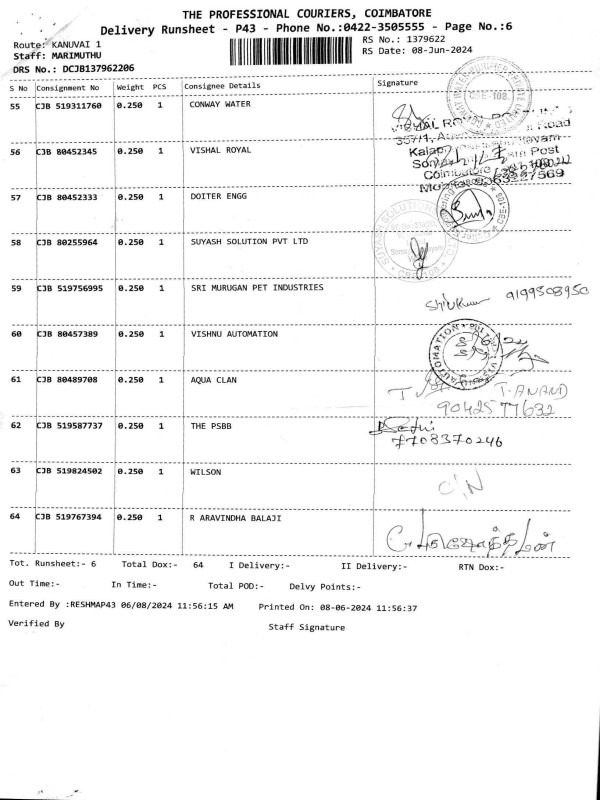 THE PROFESSIONAL COURIERS, COIMBATORE
Delivery Runsheet - P43 - Phone No.:0422-3505555 - Page No.:6
Route: KANUVAI 1
RS No.: 1379622
Staff: MARIMUTHU
RS Date: 08-Jun-2024
DRS No.: DCJB137962206
S No Consignment No Weight PCS Consignee Details Signature
55 CJB 519311760 0.250 1 CONWAY WATER
CBE-108
56 CJB 80452345 0.250 1 VISHAL ROYAL
VISHAL
Road
Post
Coimbatore
57 CJB 80452333 0.250 1 DOITER ENGG
58 CJB 80255964 0.250 1 SUYASH SOLUTION PVT LTD
SUYASH SOLUTION
59 CJB 519756995 0.250 1 SRI MURUGAN PET INDUSTRIES
9199508950
60 CJB 80457389 0.250 1 VISHNU AUTOMATION
AUTOMATION
61 CJB 80489708 0.250 1 AQUA CLAN
T. ANAND
9042577632
62 CJB 519587737 0.250 1 THE PSBB
7708370246
63 CJB 519824502 0.250 1 WILSON
64 CJB 519767394 0.250 1 R ARAVINDHA BALAJI
Tot. Runsheet:- 6 Total Dox:- 64 I Delivery:- II Delivery:- RTN Dox:-
Out Time:- In Time:- Total POD:- Delvy Points:-
Entered By :RESHMAP43 06/08/2024 11:56:15 AM Printed On: 08-06-2024 11:56:37
Verified By Staff Signature